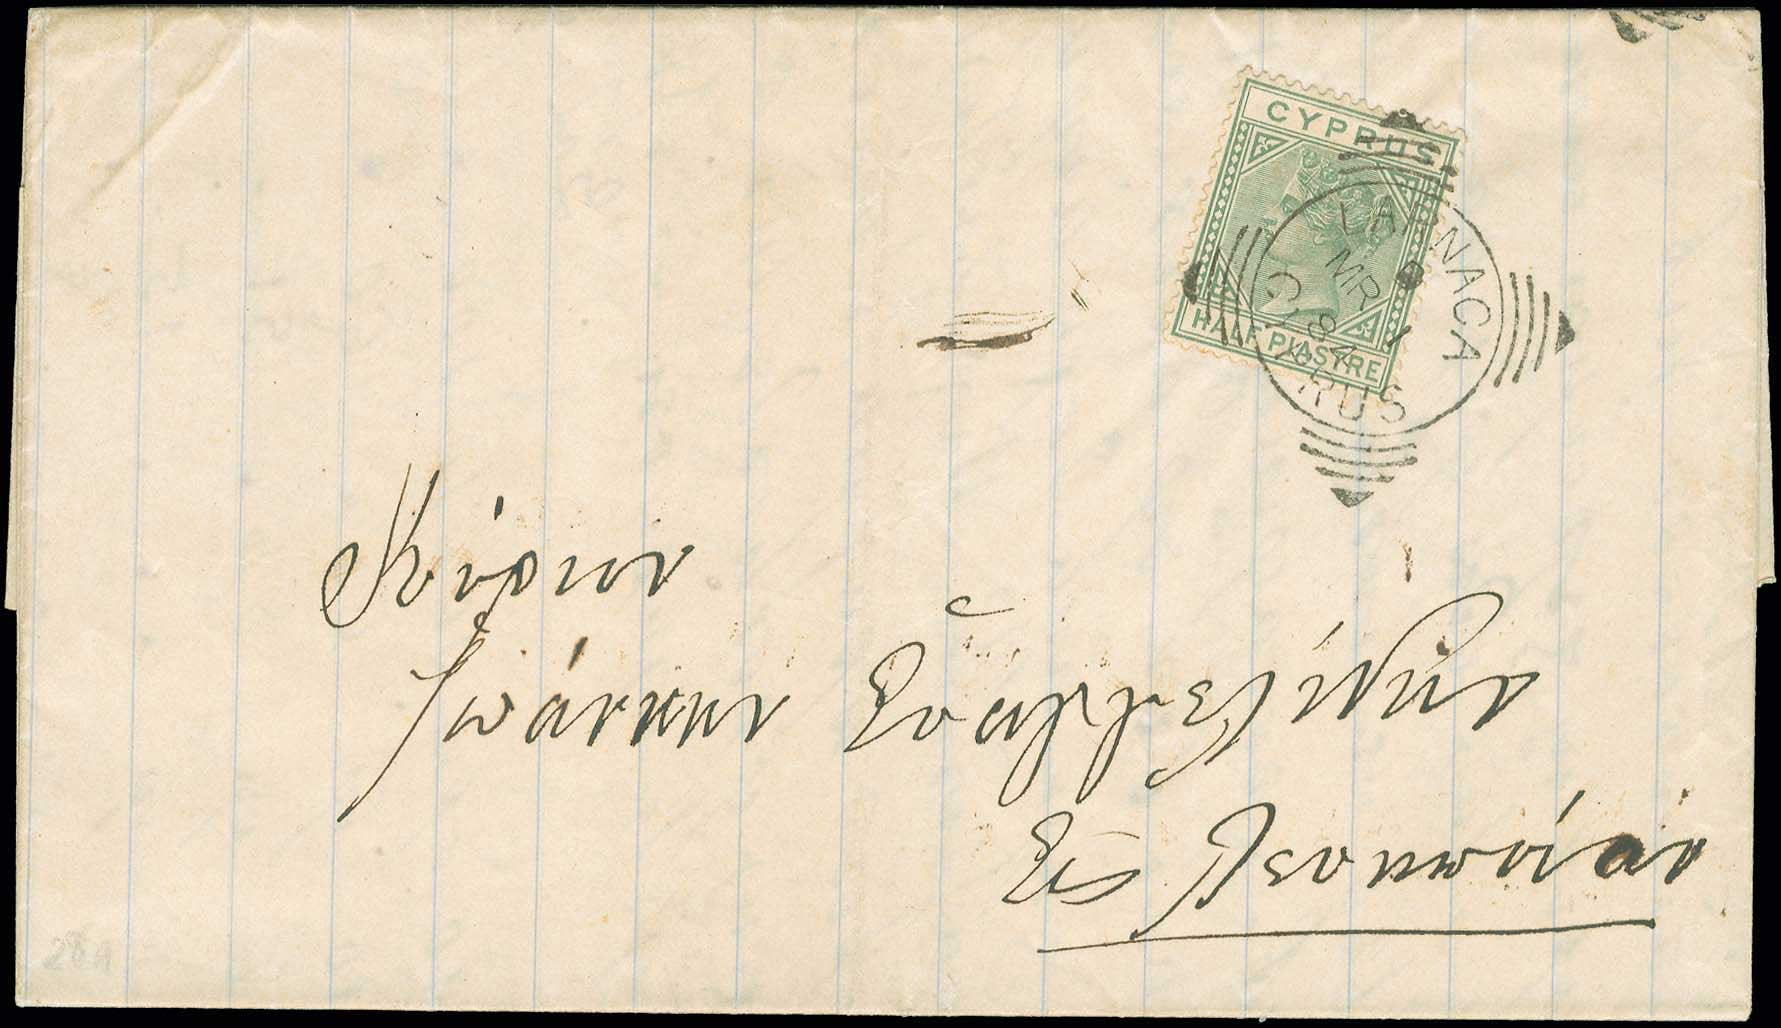 CYPRUS
HALF PIASTRE
LARNACA
MR 1
CYPRUS
Κύριον
Ἰωάννην Εὐαγγελίδην
Εἰς Λευκωσίαν